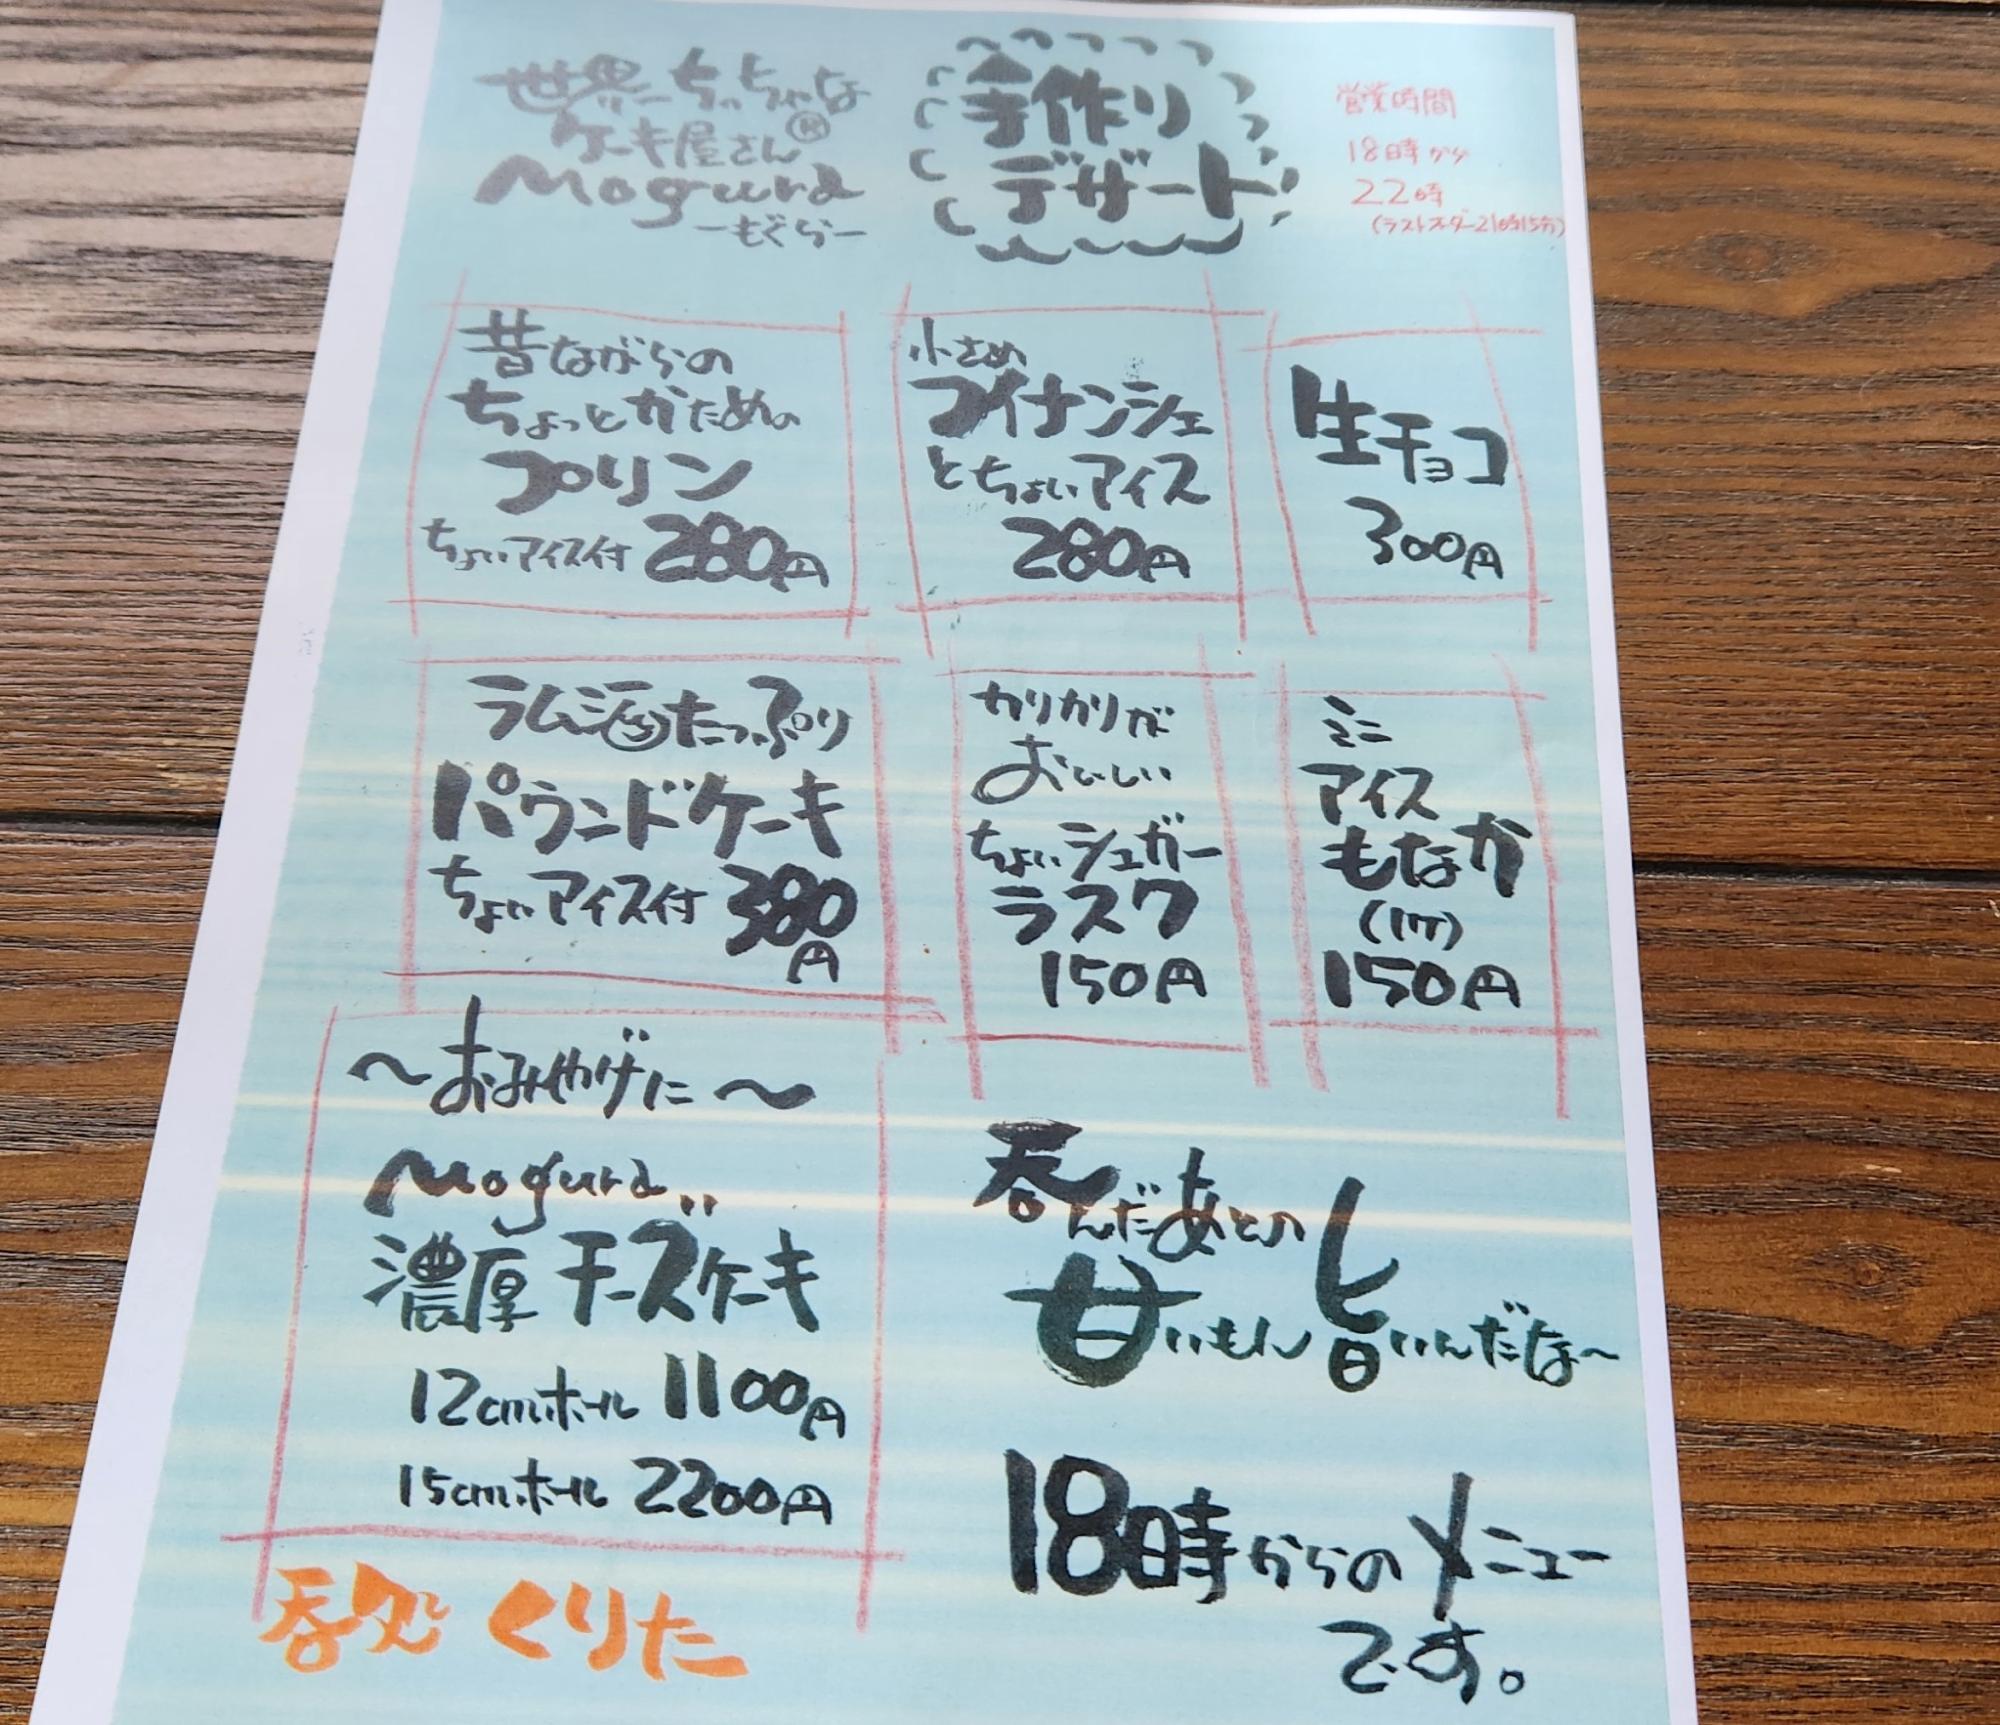 世界一ちっちゃな
ケーキ屋さん®
Mogura
ーもぐらー
手作り
デザート
営業時間
18時から
22時
(ラストオーダー21時15分)
昔ながらの
ちょっとかための
プリン
ちょいアイス付 280円
小さめ
フィナンシェ
とちょいアイス
280円
生チョコ
300円
ラム酒たっぷり
パウンドケーキ
ちょいアイス付 380
円
カリカリが
おいしい
ちょいシュガー
ラスク
150円
ミニ
アイス
もなか
(1ケ)
150円
〜おみやげに〜
Mogura
濃厚チーズケーキ
12cmホール 1100円
15cmホール 2200円
呑んだあとの
甘いもん旨いんだな〜
18時からのメニュー
です。
呑処 くりた